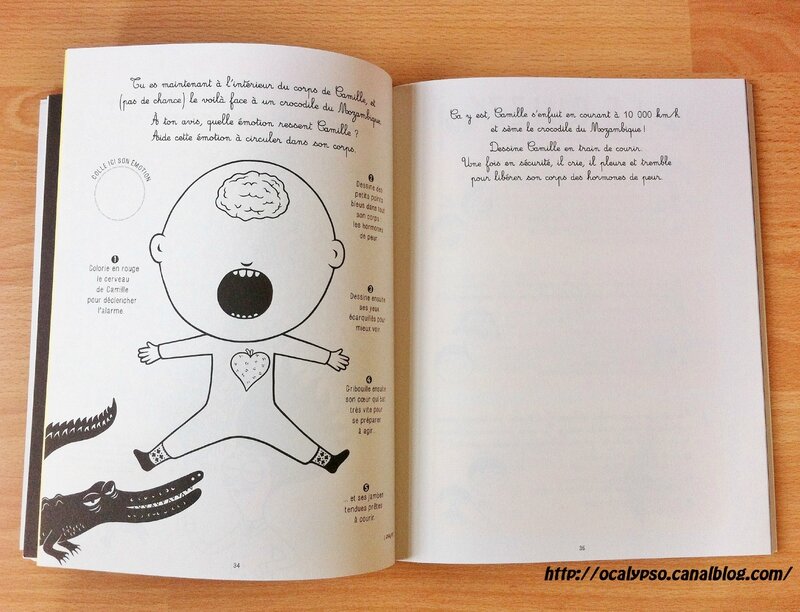 Tu es maintenant à l'intérieur du corps de Camille, et
(pas de chance) le voilà face à un crocodile du Mozambique.
À ton avis, quelle émotion ressent Camille ?
Aide cette émotion à circuler dans son corps.
COLLE ICI SON ÉMOTION
1
Colorie en rouge
le cerveau
de Camille
pour déclencher
l'alarme.
2
Dessine des
petits points
bleus dans tout
son corps :
les hormones
de peur.
3
Dessine ensuite
ses yeux
écarquillés pour
mieux voir.
4
Gribouille ensuite
son cœur qui bat
très vite pour
se préparer
à agir...
5
... et ses jambes
tendues prêtes
à courir.
34
Ça y est, Camille s'enfuit en courant à 10 000 km/h
et sème le crocodile du Mozambique !
Dessine Camille en train de courir.
Une fois en sécurité, il crie, il pleure et tremble
pour libérer son corps des hormones de peur.
35
http://ocalypso.canalblog.com/